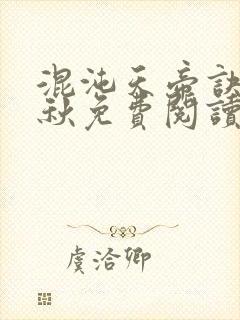 混沌天帝訣
秋免費閱讀
虞洽卿